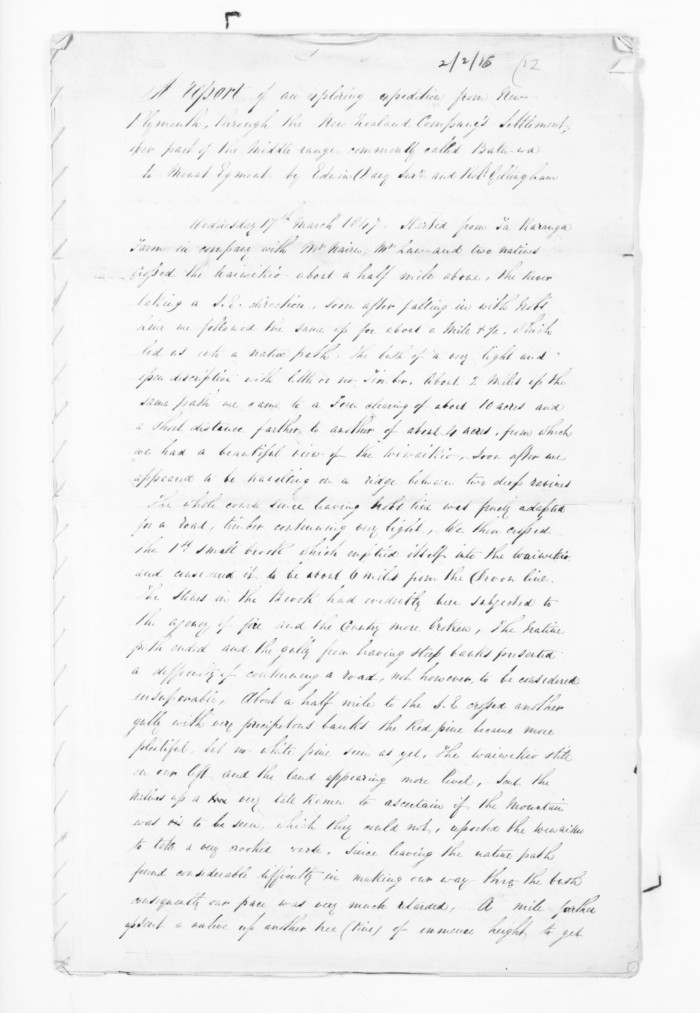 2/2/15 (12
A report of an exploring expedition from New
Plymouth, through the New Zealand Company's Settlement,
over part of the Middle range commonly called
to Mount Egmont by Edwin Davy Surr. and Robt. Gillingham
Wednesday 17th March 1847. Started from Ta Karanga
Farm in company with Mr Nairn, Mr Law and two natives
crossed the waiwakio about a half mile above, the river
taking a S.E. direction, soon after falling in with
line we followed the same up for about a Mile & ½, which
led us into a native path. The bush of a very light and
open discription with little or no Timber. About 2 Miles up the
same path we came to a clearing of about 10 acres and
a Short distance farther to another of about 4 acres, from which
we had a beautiful view of the waiwakio, Soon after we
appeared to be travelling on a ridge between two deep ravines
The whole course since leaving line was finely adapted
for a road, timber continuing very light, We then crossed
the 1st small brook which emptied itself into the waiwakio
and considered it to be about 6 miles from the Devon line.
The stones in the Brook had evidently been subjected to
the agency of fire and the Country more broken, The native
path ended and the gully from having steep banks presented
a difficulty of continuing a road, not however, to be considered
insuperable, About a half mile to the S.E crossed another
gully with very precipitous banks the Red pine became more
plentiful but no white pine seen as yet, The waiwakio still
on our left and the land appearing more level, Sent the
natives up a very tall to ascertain if the Mountain
was to be seen, which they could not, reported the waiwakio
to take a very crooked course. Since leaving the native path
found considerable difficulty in making our way thro the bush
consequently our pace was very much retarded, A mile further
sent a native up another tree (time) of immense height to get